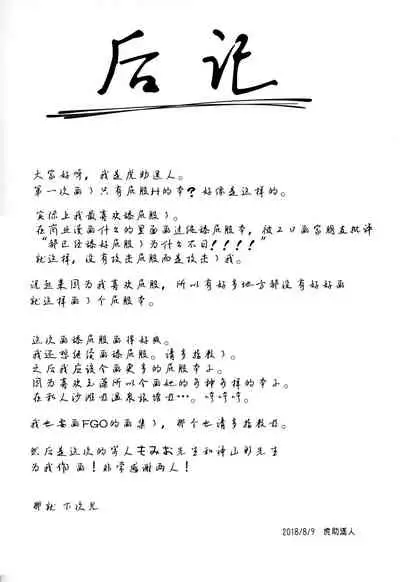 后记
大家好呀，我是虎助遥人。
第一次画了只有屁股H的本？好像是这样的。
实际上我最喜欢臻屁股了。
在商业漫画什么的里面画过绝臻屁股本，被2U画家朋友批评
“都已经臻好屁股了为什么不日！！！！”
就这样，没有攻击屁股而是攻击了我。
说起来因为我喜欢屁股，所以有好多地方都没有好好画
就这样画了个屁股本。
这次画臻屁股画得好爽。
我还想继续画臻屁股。请多指教了。
之后我应该会画更多的屁股本子。
因为喜欢玉藻所以会画她的各种各样的本子。
在私人沙滩也温泉旅馆也…。哼哼哼。
我也要画FGO的画集了，那个也请多指教。
然后是这次的客人もみお先生和诗山彩先生
为我作画！非常感谢两人！
那就 下次见
2018/8/9 虎助遥人